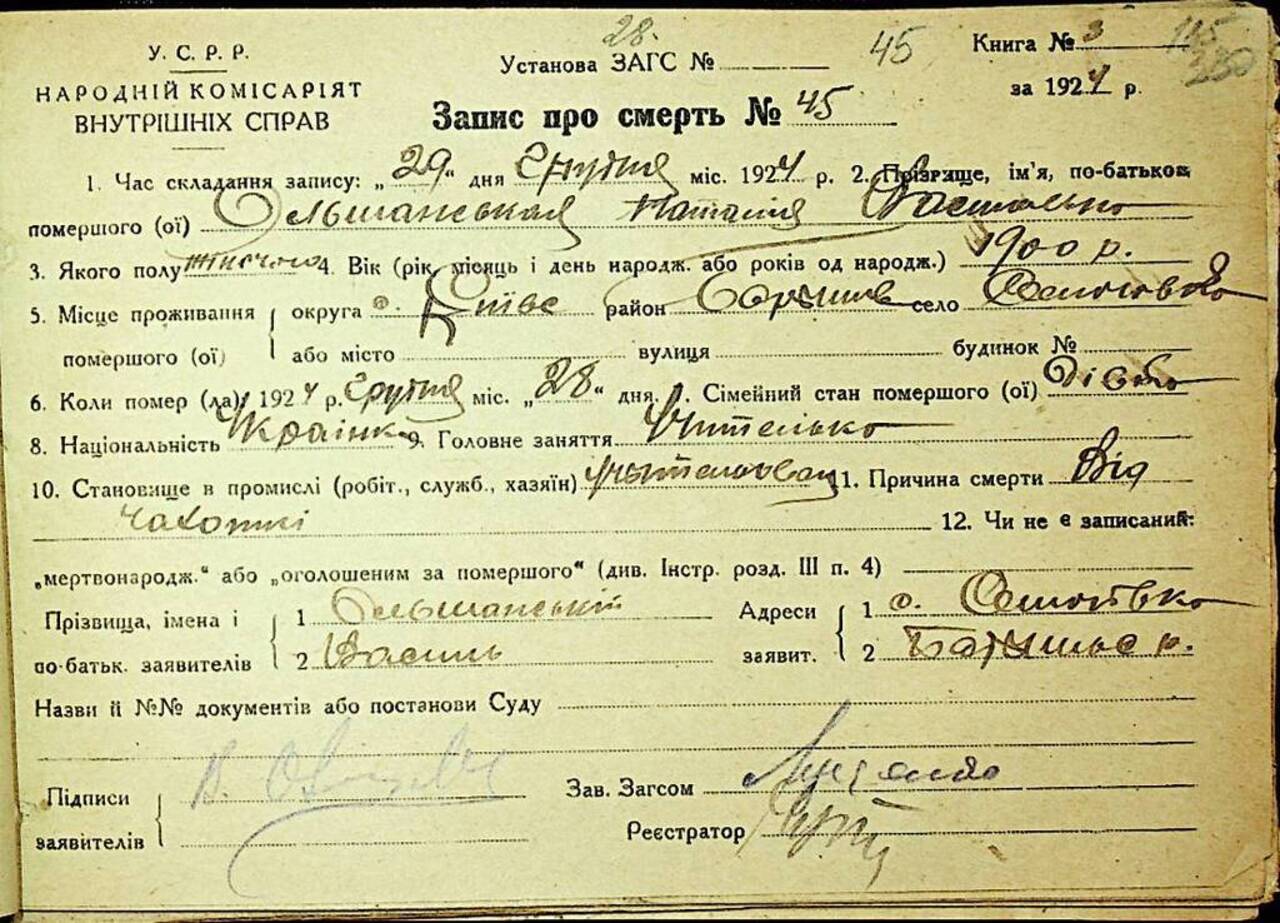 У. С. Р. Р.
НАРОДНІЙ КОМІСАРІЯТ
ВНУТРІШНІХ СПРАВ
28.
Установа ЗАГС №
45
Книга № 3
115
230
за 1924 р.
Запис про смерть № 45
1. Час складання запису: „29“ дня Грудня міс. 1924 р. 2. Прізвище, ім'я, по-батькові
помершого (ої) Ольшанськая Наталія
3. Якого полу жіночого 4. Вік (рік, місяць і день народж. або років од народж.) 1900 р.
5. Місце проживання помершого (ої) { округа Київс район село
або місто вулиця будинок №
6. Коли помер (ла) 1924 р. Грудня міс. „28“ дня. 7. Сімейний стан помершого (ої)
8. Національність Українка 9. Головне заняття Учителька
10. Становище в промислі (робіт., служб., хазяїн) 11. Причина смерти Від
чахоткі 12. Чи не є записаний:
„мертвонародж.“ або „оголошеним за помершого“ (див. Інстр. розд. III п. 4)
Прізвища, імена і по-батьк. заявителів { 1 Ольшанській Адреси заявит. { 1 с.
2 Василь 2 р.
Назви й №№ документів або постанови Суду
Підписи заявителів { В.
Зав. Загсом
Реєстратор